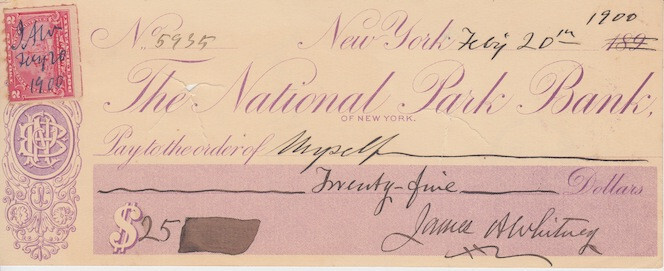 1900
No. 5935 New York Feby 20th 189
The National Park Bank,
OF NEW YORK.
Pay to the order of Myself
Twenty-five Dollars
$25
James A Whitney
2 2
Feby 20
1900